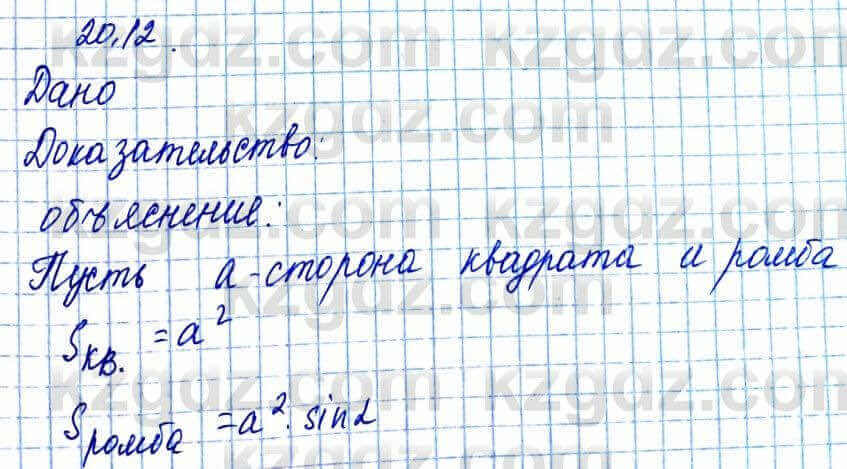 20.12.
Дано
Доказательство:
объяснение:
Пусть a - сторона квадрата и ромба
Sкв. = a²
Sромба = a² · sinα
kzgdz.com
kzgdz.com
kzgdz.com
kzgdz.com
kzgdz.com
kzgdz.com
kzgdz.com
kzgdz.com
kzgdz.com